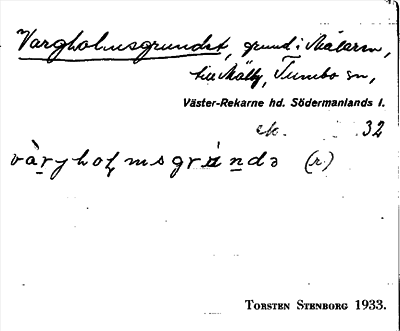 Vargholmsgrundet, grund i Mälaren,
till Mälby, Tumbo sn,
Väster-Rekarne hd. Södermanlands l.
ek. 32
vàrgholmsgrúndə (r.)
TORSTEN STENBORG 1933.